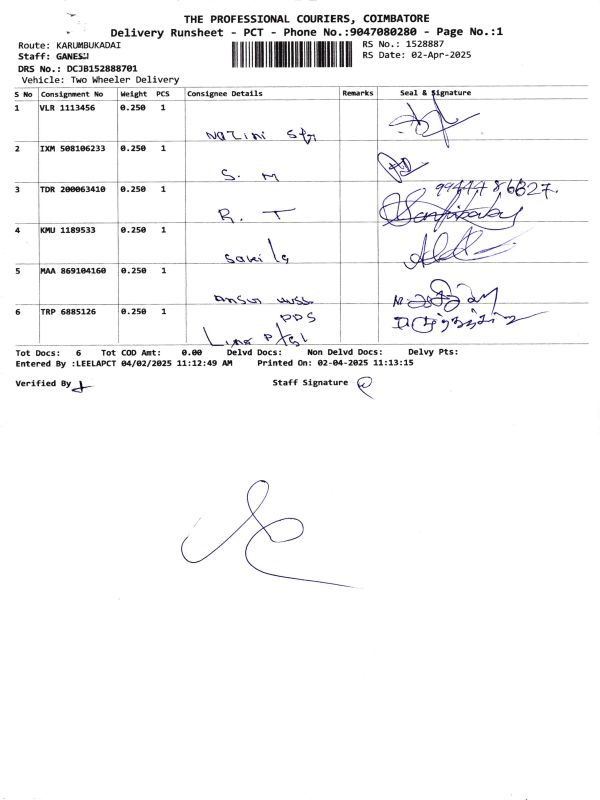 THE PROFESSIONAL COURIERS, COIMBATORE
Delivery Runsheet - PCT - Phone No.:9047080280 - Page No.:1
Route: KARUMBUKADAI
RS No.: 1528887
Staff: GANESH
RS Date: 02-Apr-2025
DRS No.: DCJB152888701
Vehicle: Two Wheeler Delivery
S No Consignment No Weight PCS Consignee Details Remarks Seal & Signature
1 VLR 1113456 0.250 1
2 IXM 508106233 0.250 1
S. M
3 TDR 200063410 0.250 1
R. T
4 KMU 1189533 0.250 1
5 MAA 869104160 0.250 1
6 TRP 6885126 0.250 1
PPS
Tot Docs: 6 Tot COD Amt: 0.00 Delvd Docs: Non Delvd Docs: Delvy Pts:
Entered By :LEELAPCT 04/02/2025 11:12:49 AM Printed On: 02-04-2025 11:13:15
Verified By Staff Signature